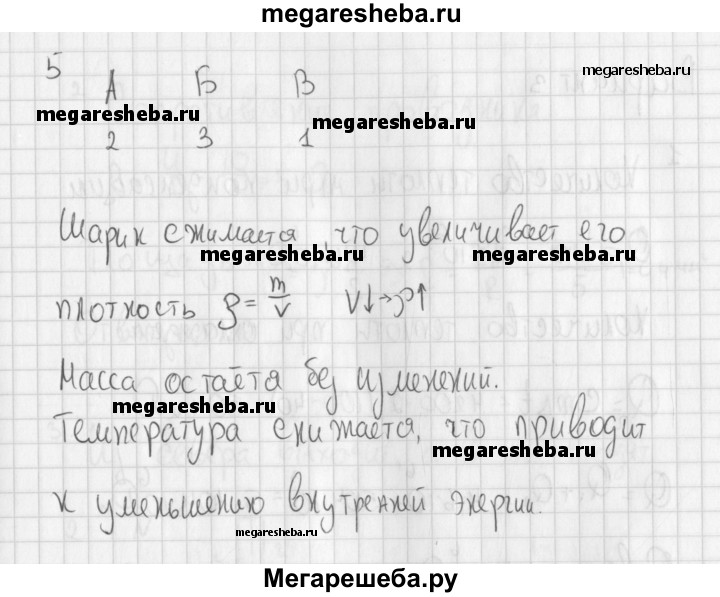 megaresheba.ru
5
А Б В
megaresheba.ru
megaresheba.ru
megaresheba.ru
2 3 1
Шарик сжимается, что увеличивает его
megaresheba.ru
megaresheba.ru
плотность ρ = m/V V↓→ρ↑
Масса остаётя без изменений.
megaresheba.ru
Температура снижается, что приводит
megaresheba.ru
к уменьшению внутренней энергии.
megaresheba.ru
Мегарешеба.ру